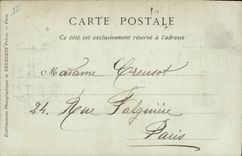 II.
CARTE POSTALE
Ce côté est exclusivement réservé à l'adresse
Madame Creusot
24. Rue Falguière
Paris
Établissements Photographiques de NEURDEIN Frères. — Paris